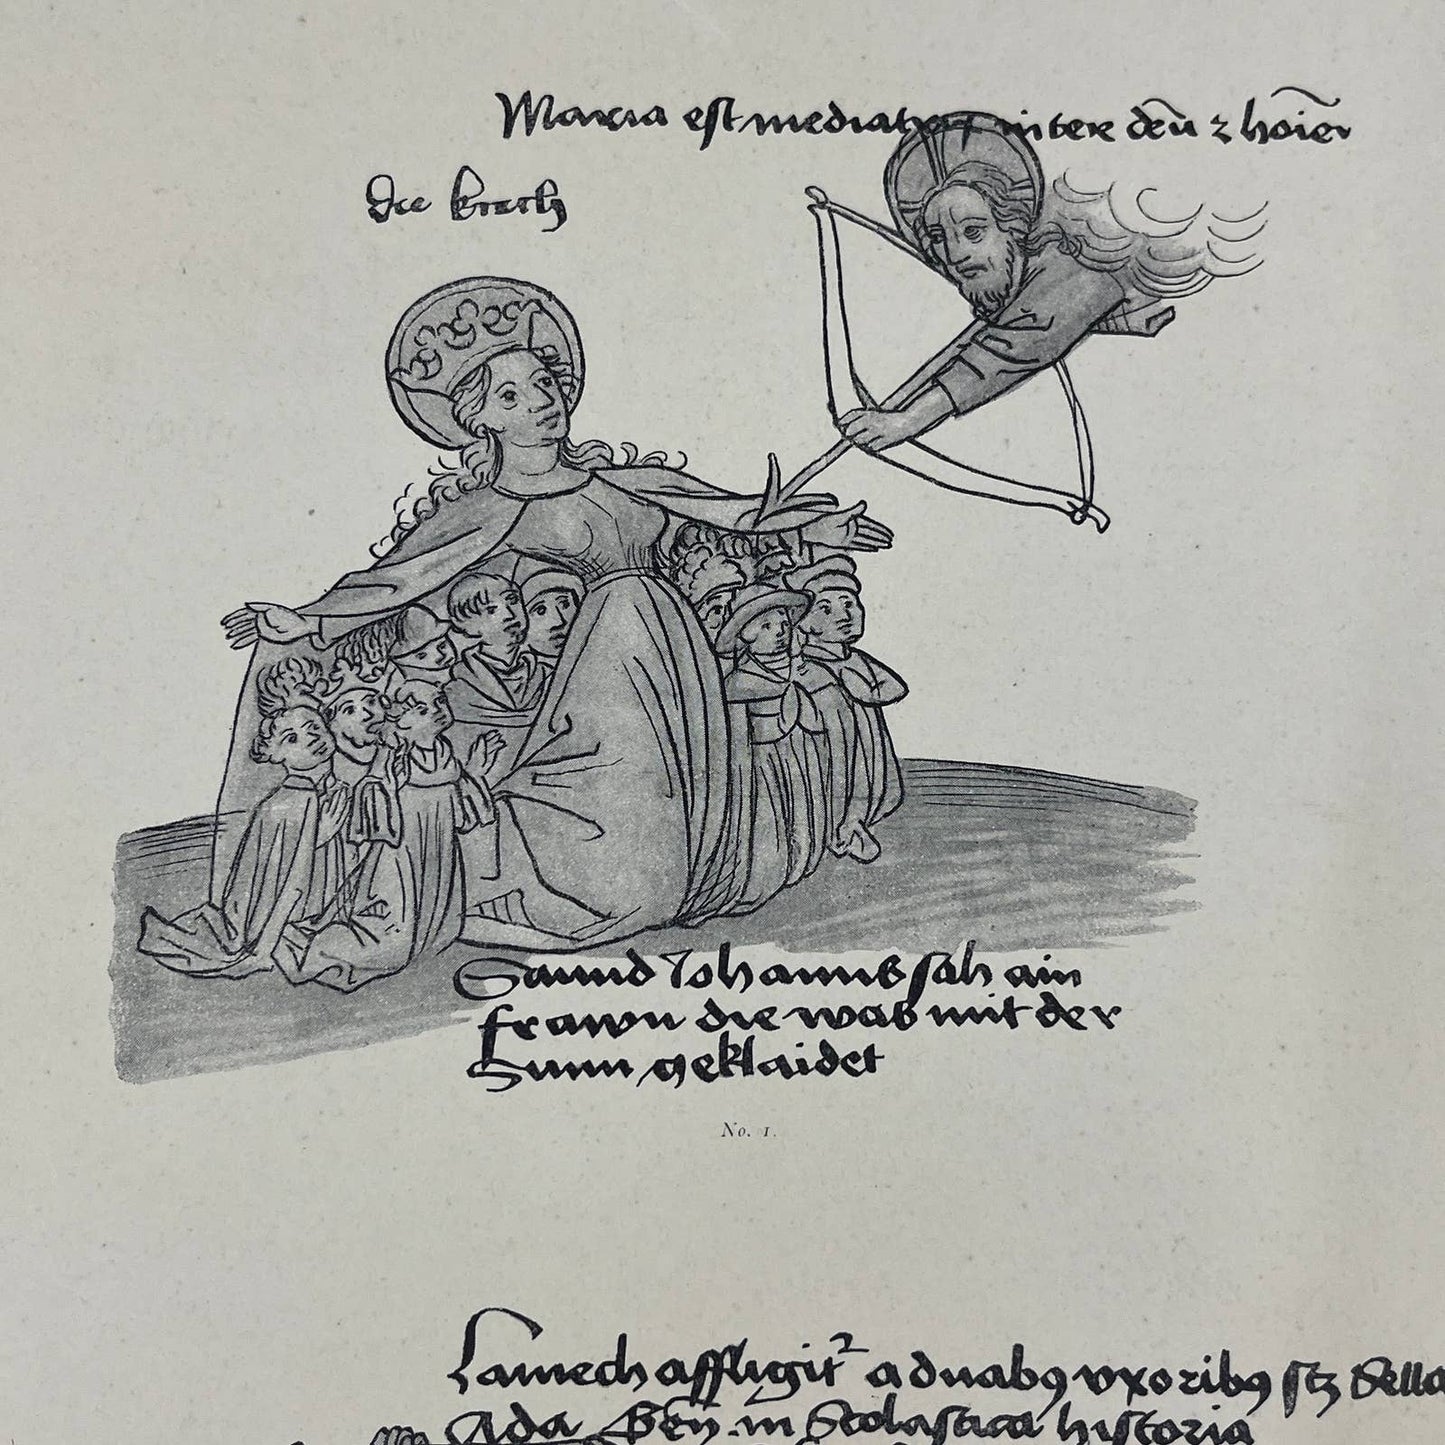 Maria est mediatrix inter deū ⁊ hoīem
die
Sannd Johanns sah ain
frawn die was mit der
Sunn geklaidet
No. 1.
Lamech affligitꝰ a duabꝯ vxoribꝯ sꝫ Sella
Ada Gen̄. in Scolastica historia